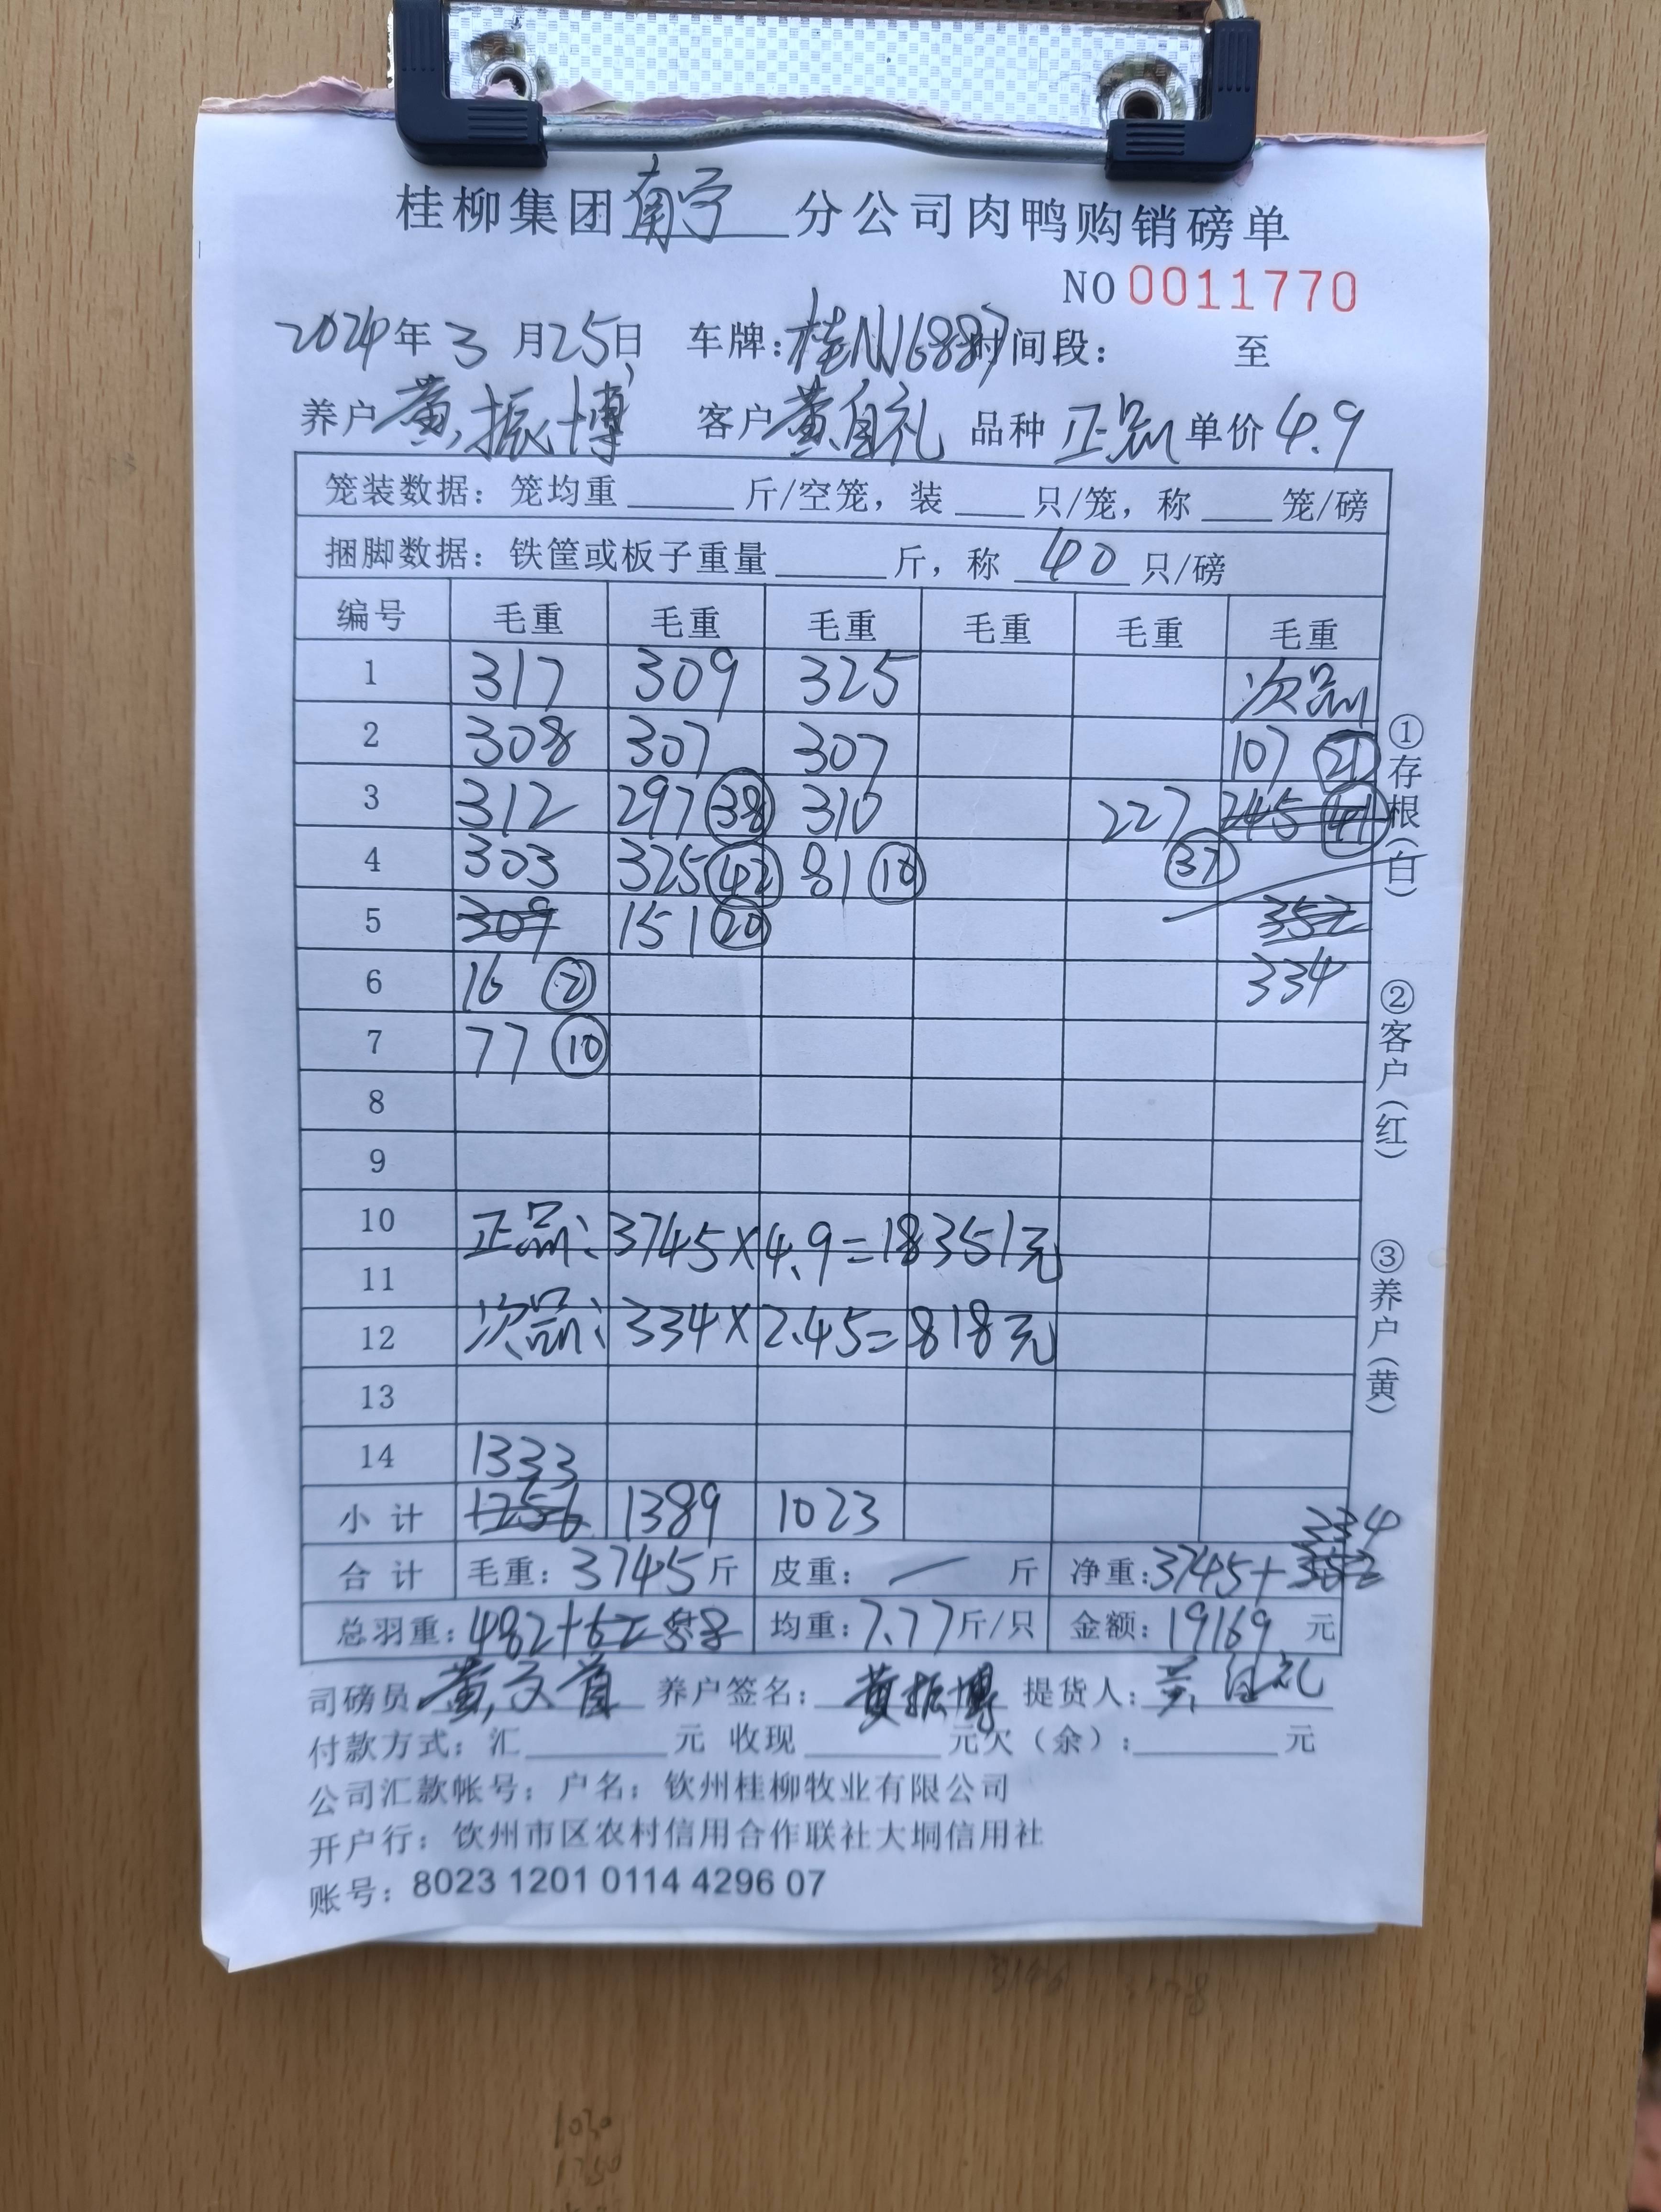 桂柳集团南宁分公司肉鸭购销磅单
NO 0011770
2024年3月25日 车牌:桂N16887 时间段: 至
养户 黄振博 客户 黄自礼 品种 正品 单价 4.9
笼装数据: 笼均重 斤/空笼, 装 只/笼, 称 笼/磅
捆脚数据: 铁筐或板子重量 斤, 称 40 只/磅
编号 毛重 毛重 毛重 毛重 毛重 毛重
1 317 309 325 次品
2 308 307 307 107 21
3 312 297 38 310 227 245 41
4 303 325 42 81 10 37
5 309 151 20 352
6 16 2 334
7 77 10
8
9
10 正品: 3745×4.9=18351元
11
12 次品: 334×2.45=818元
13
14 1333
小计 1256 1389 1023
334
合计 毛重: 3745斤 皮重: 一 斤 净重: 3745+352
总羽重: 482+62 58 均重: 7.77斤/只 金额: 19169 元
司磅员 养户签名: 黄振博 提货人: 黄自礼
付款方式: 汇 元 收现 元欠(余): 元
公司汇款帐号: 户名: 钦州桂柳牧业有限公司
开户行: 饮州市区农村信用合作联社大垌信用社
账号: 8023 1201 0114 4296 07
①存根(白)
②客户(红)
③养户(黄)
1030
1250